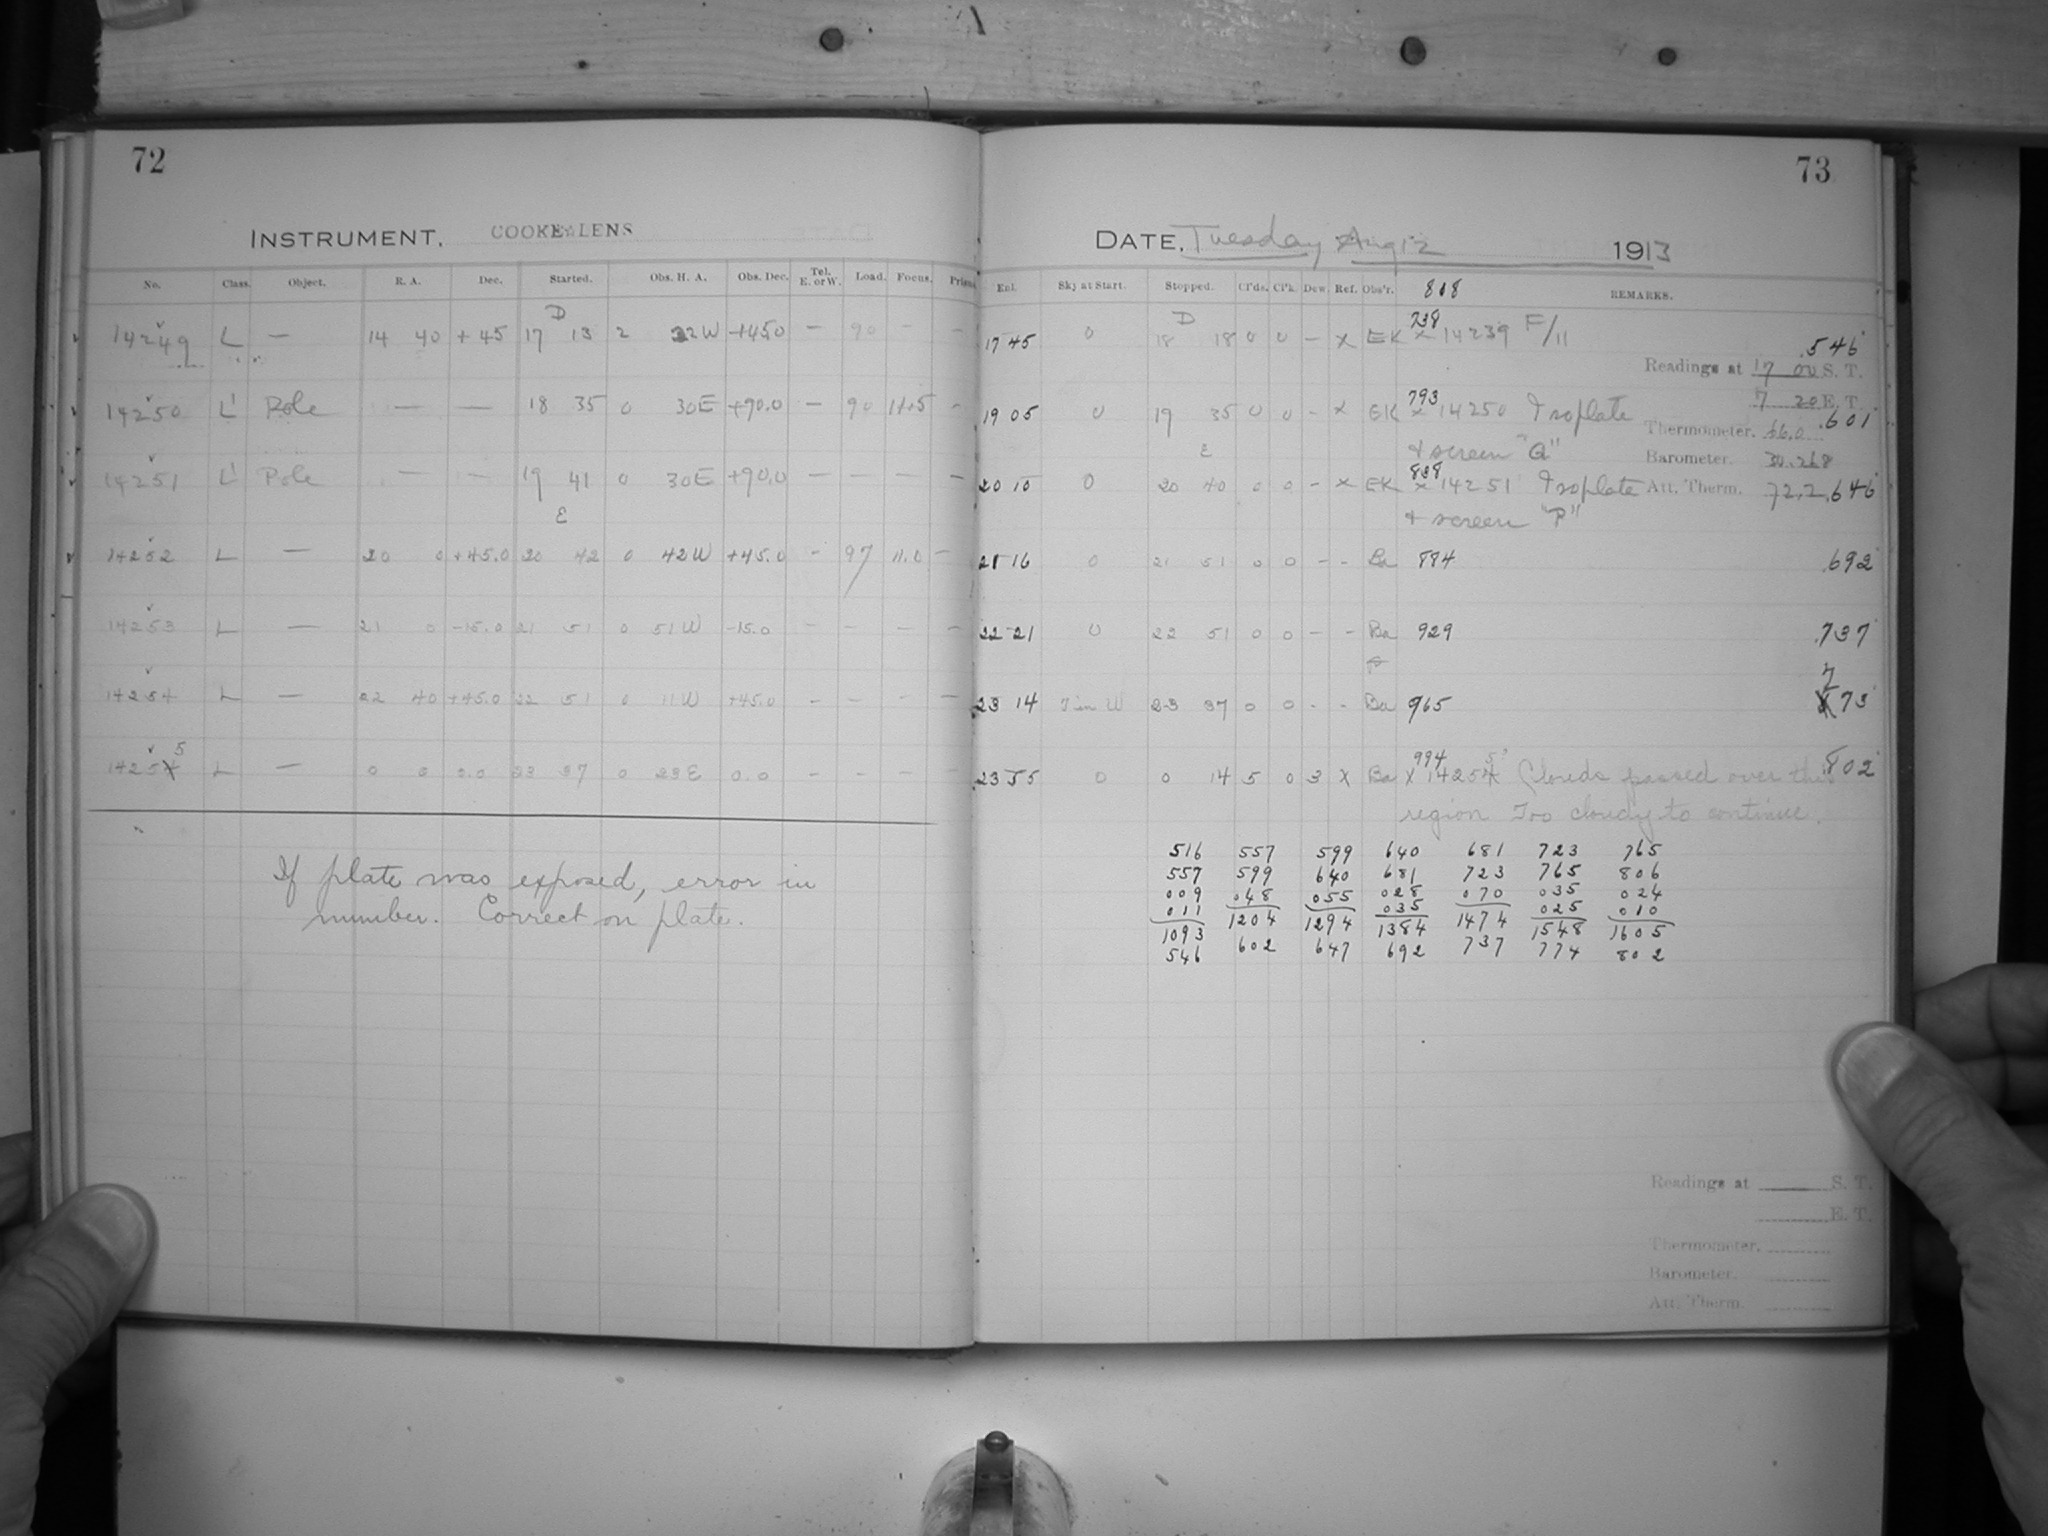 72
INSTRUMENT. COOKE LENS
No. Class. Object. R. A. Dec. Started. Obs. H. A. Obs. Dec. Tel. E. or W. Load. Focus. Prism.
D
14249 L — 14 40 +45 17 13 2 22W +45.0 — 90 — —
14250 L' Pole — — 18 35 0 30E +90.0 — 90 11.5 —
14251 L' Pole — — 19 41 0 30E +90.0 — — — —
E
14252 L — 20 0 +45.0 20 42 0 42W +45.0 — 97 11.0 —
14253 L — 21 0 -15.0 21 51 0 51W -15.0 — — — —
14254 L — 22 40 +45.0 22 51 0 11W +45.0 — — — —
5
14254 L — 0 0 0.0 23 37 0 23E 0.0 — — — —
If plate was exposed, error in
number. Correct on plate.
73
DATE. Tuesday Aug 12 1913
Exl. Sky at Start. Stopped. Cl'ds. Cl'k. Dew. Ref. Obs'r. 818 REMARKS.
D 738
17 45 0 18 18 0 0 — x EK x 14239 F/11 .546
Readings at 17 00 S. T.
7 20 E. T.
793
19 05 0 19 35 0 0 - x EK x 14250 Isoplate .601
Thermometer. 66.0
E & screen "Q" Barometer. 30.268
838
20 10 0 20 40 0 0 - x EK x 14251 Isoplate Att. Therm. 72.2 .646
& screen "P"
21 16 0 21 51 0 0 - - Ba 884 .692
22 21 0 22 51 0 0 - - Ba 929 .737
7
23 14 W 23 37 0 0 - - Ba 965 73
994 5
23 55 0 0 14 5 0 3 X Ba x 14254 Clouds passed over this .802
region Too cloudy to continue.
516 557 599 640 681 723 765
557 599 640 681 723 765 806
009 048 055 028 070 035 024
011 1204 1294 035 1474 025 010
1093 602 647 1384 737 1548 1605
546 692 774 802
Readings at S. T.
E. T.
Thermometer.
Barometer.
Att. Therm.